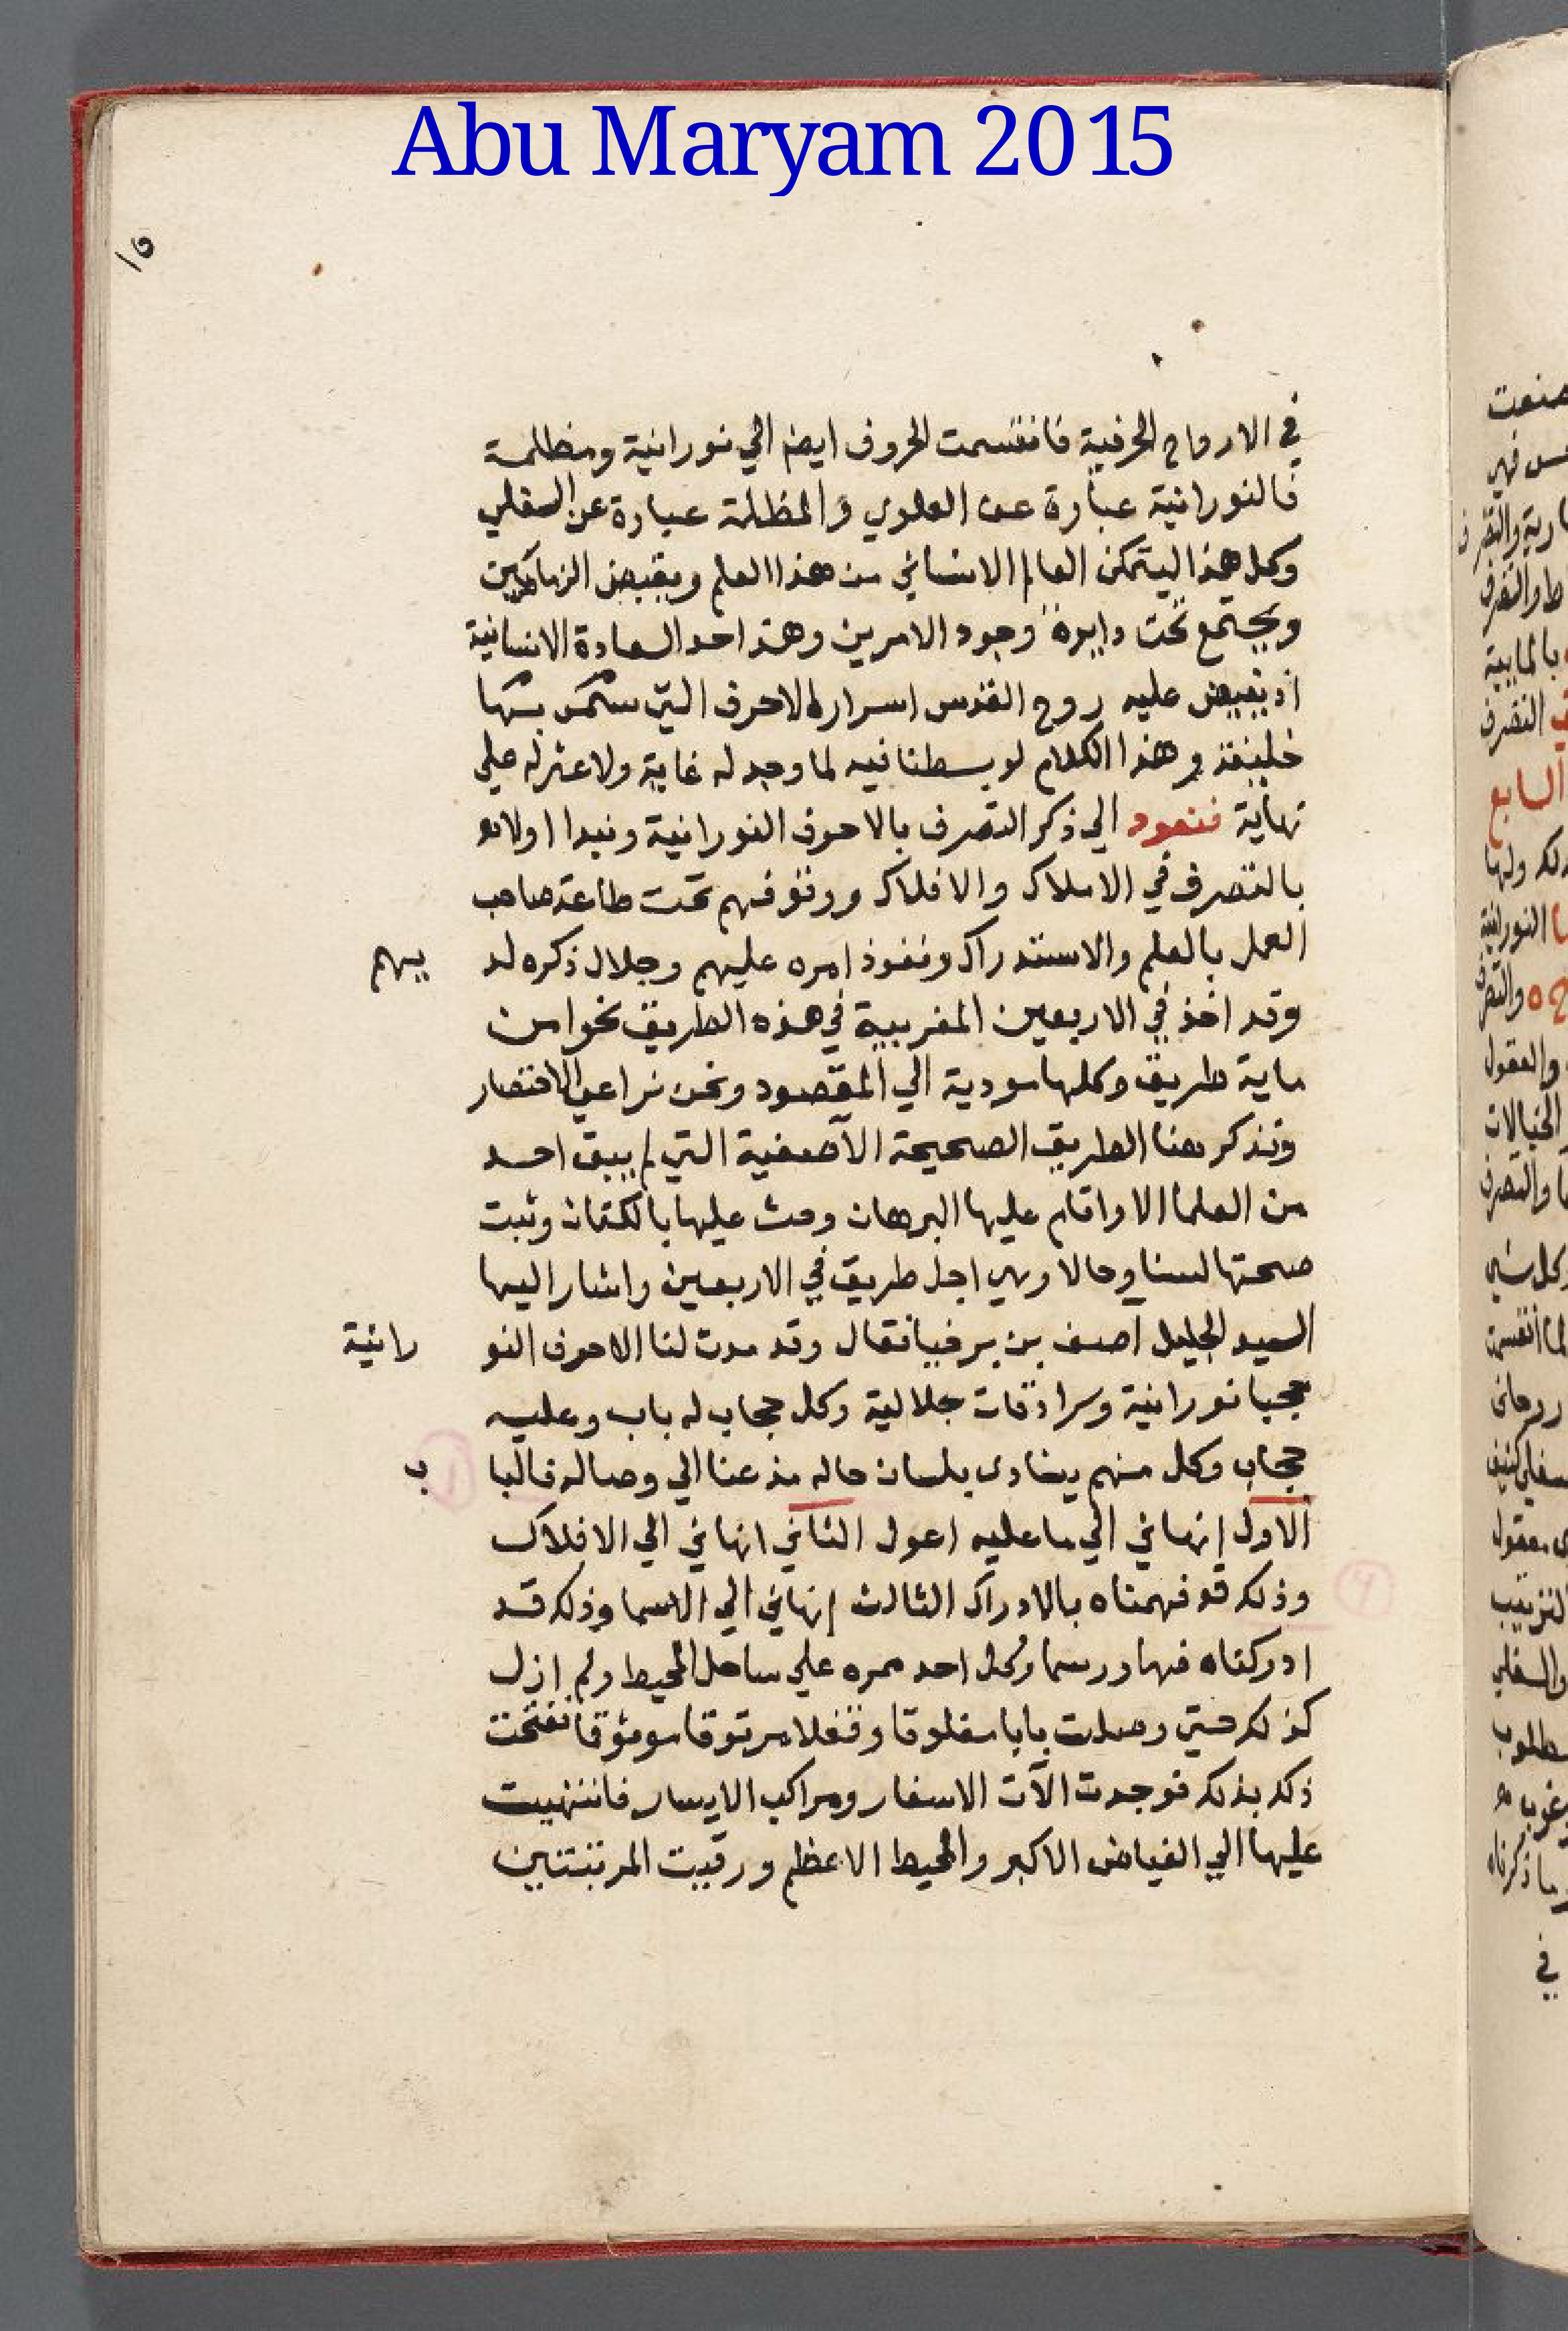 Abu Maryam 2015
١٥
في الارواح الحرفية فانقسمت الحروف ايضا الي نورانية ومظلمة
فالنورانية عبارة عن العلوي والمظلمة عبارة عن السفلي
وكل هذا ليتمكن العالم الانساني من هذا العلم ويقبض الزمامين
ويجتمع تحت دايرة وجود الامرين وهذا حد السعادة الانسانية
اذ يفيض عليه روح القدس اسرار الاحرف التي
خليفة وهذا الكلام لو بسطنا فيه لما وجد له غاية ولا عثر له علي
نهاية فنعود الي ذكر التصرف بالاحرف النورانية ونبدا اولا
بالتصرف في الاملاك والافلاك ووقوفهم تحت طاعة صاحب
العمل بالعلم والاستدراك ونفوذ امره عليهم وجلال ذكره لد يهم
وقد اخذ في الاربعين المغربية في هذه الطريق نحوا من
ماية طريق وكلها مودية الي المقصود ونحن نراعي الاختصار
ونذكر هنا الطريق الصحيحة الآصفية التي لم يبق احد
من العلما الا واقام عليها البرهان وحث عليها بالكتمان وثبت
صحتها لسنا وحالا وهي اجل طريق في الاربعين واشار اليها
السيد الجليل اصف بن برخيا فقال وقد مدت لنا الاحرف النو رانية
حجبا نورانية وسرادقات جلالية وكل حجاب له باب وعليه
حجاب وكل منهم ينادي بلسان حاله مذ عنا الي وصاله فالبا ب
الاول إنهاني الي ما عليه اعول الثاني انهاني الي الافلاك
وذلك قد فهمناه بالادراك الثالث إنهاني الي الاسما وذلك قد
ادركناه فهما ورسما وكل احد ممره علي ساحل المحيط ولم ازل
كذلك حتي وصلت بابا مغلوقا وقفلا مرتوقا موثوقا ففتحت
ذلك بذلك فوجدت الآت الاسفار ومراكب الايسار فانتهيت
عليها الي الفياض الاكبر والمحيط الاعظم ورقيت المرتبتين